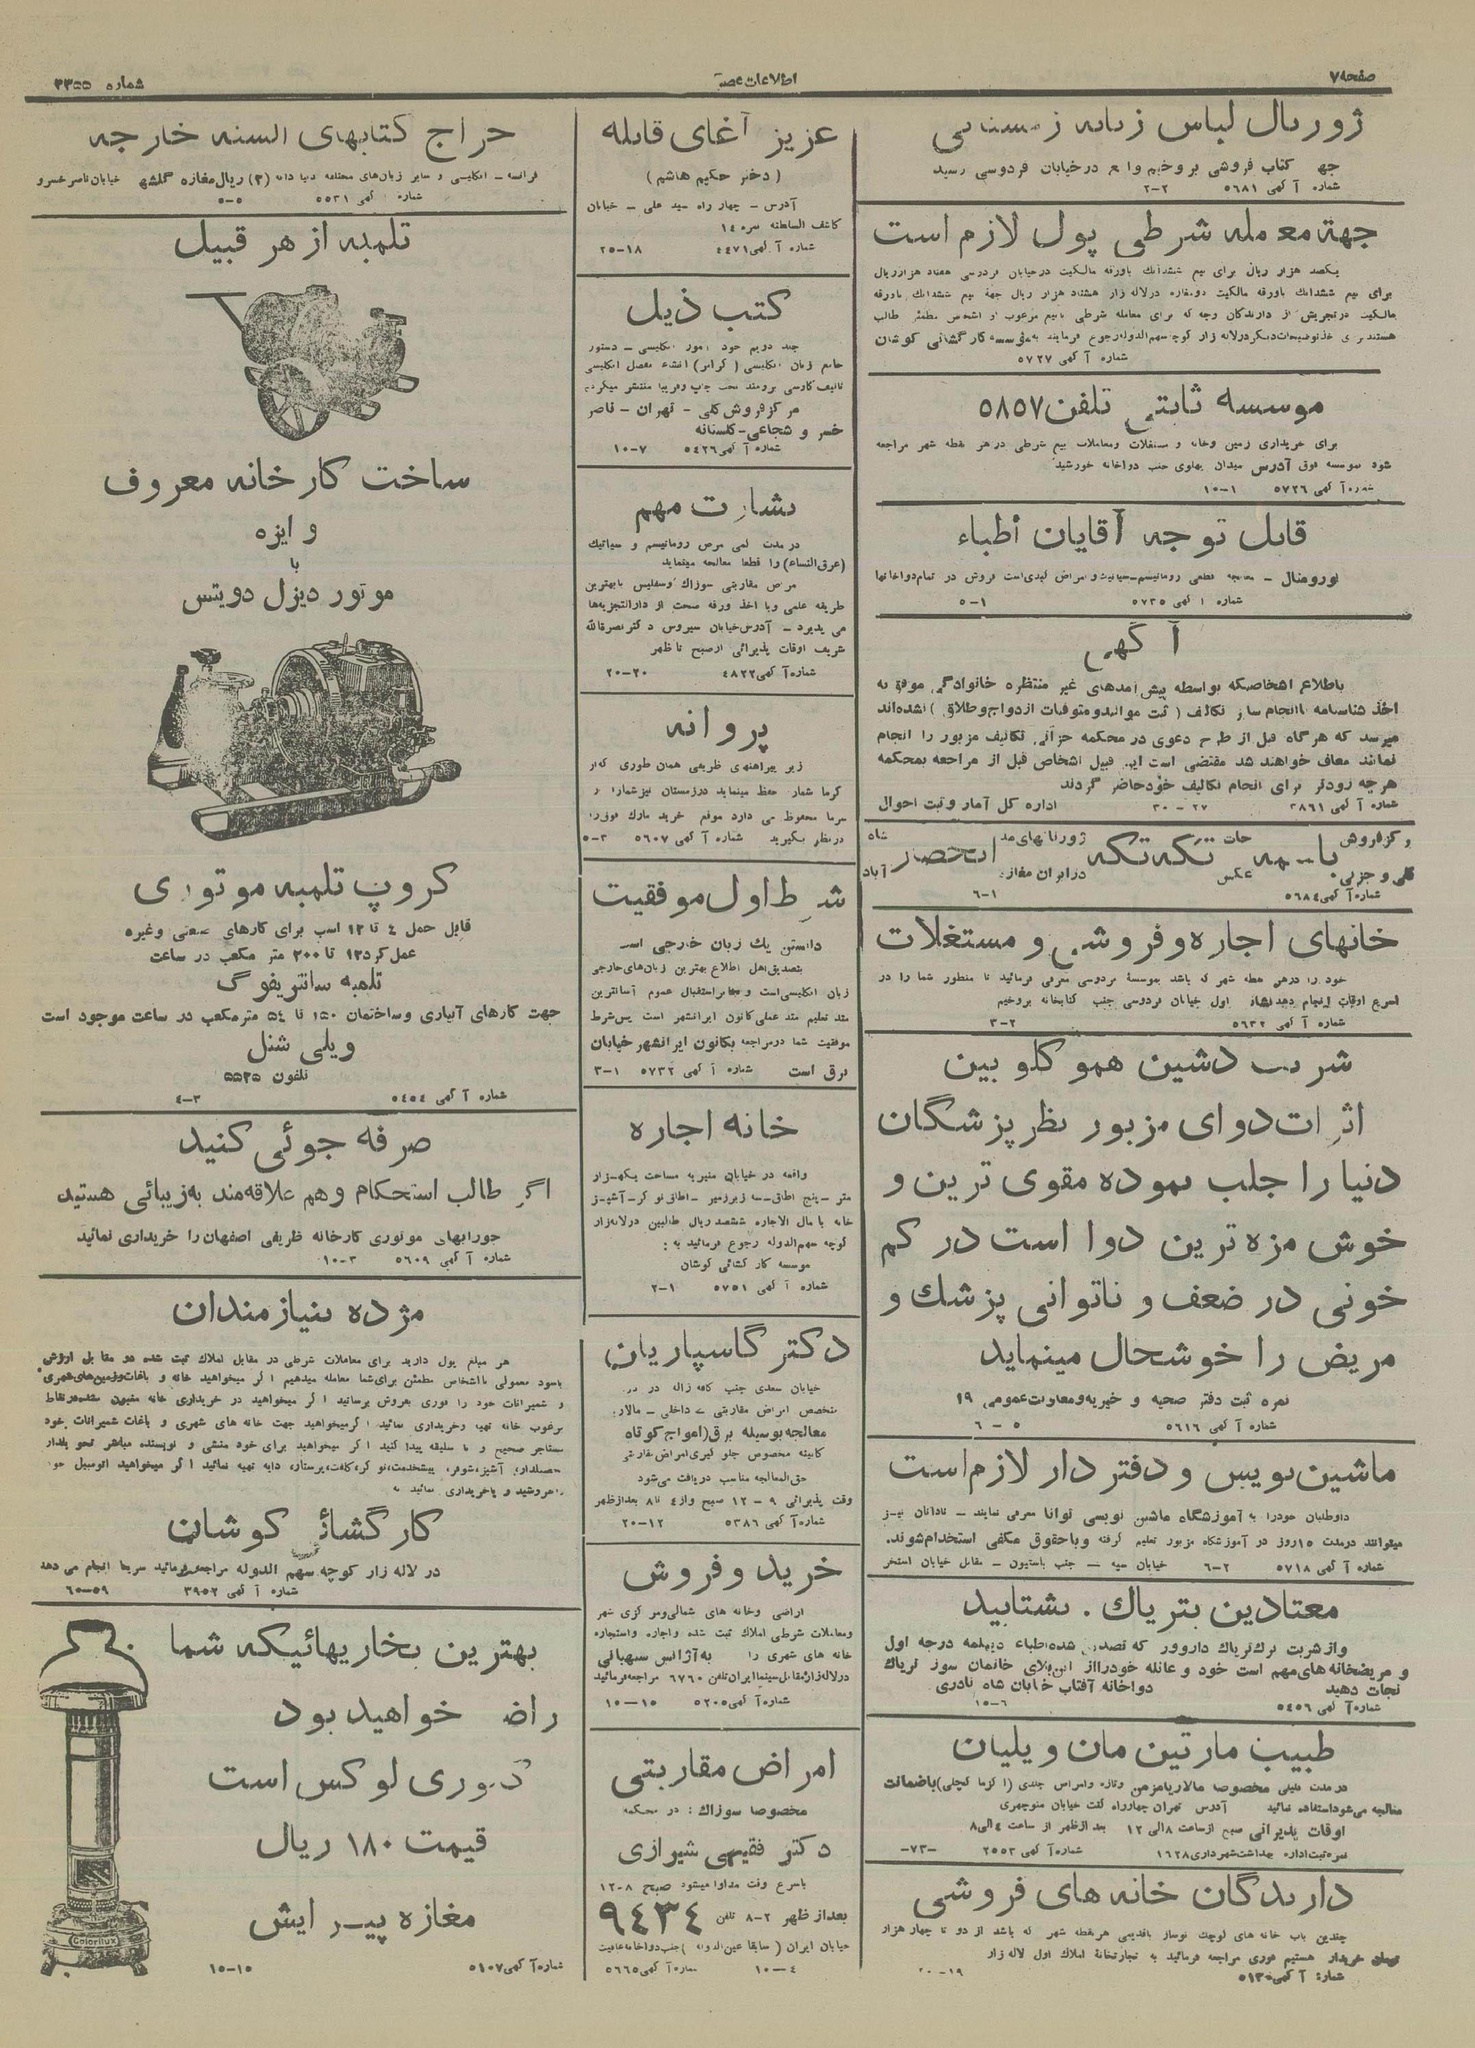 صفحه ۷
اطلاعات عصر
شماره ۳۳۵۵
ژورنال لباس زنانه زمستانی
کتاب فروشی بروخیم واقع درخیابان فردوسی رسید
شماره آگهی ۵۶۸۱ ۲-۲
جهة معامله شرطی پول لازم است
یکصد هزار ریال برای نیم ششدانك باورقه مالکیت درخیابان فردوسی هفتاد هزارریال
برای نیم ششدانك باورقه مالکیت دومغازه درلاله زار هشتاد هزار ریال جهة نیم ششدانك باورقه
شماره آگهی ۵۷۲۷
موسسه ثابتی تلفن ۵۸۵۷
برای خریداری زمین وخانه و مستغلات ومعاملات بیع شرطی درهر نقطه شهر مراجعه
شود بموسسه فوق آدرس میدان پهلوی جنب دواخانه خورشید
شماره آگهی ۵۷۲۶ ۱-۱۰
قابل توجه آقایان اطباء
شماره آگهی ۵۷۳۵ ۱-۵
آگهی
باطلاع اشخاصیکه بواسطه پیش آمدهای غیر منتظره خانوادگی موفق به
اخذ شناسنامه یاانجام سایر تکالیف ( ثبت موالیدومتوفیات ازدواج وطلاق ) نشده‌اند
میرسد که هرگاه قبل از طرح دعوی در محکمه جزائی تکالیف مزبور را انجام
نمایند معاف خواهند شد مقتضی است این قبیل اشخاص قبل از مراجعه بمحکمه
هرچه زودتر برای انجام تکالیف خودحاضر گردند
شماره آگهی ۳۸۶۱ ۲۷-۳۰ اداره کل آمار وثبت احوال
شماره آگهی ۵۶۸۴ ۱-۶
خانهای اجاره و فروشی و مستغلات
خود را درهر نقطه شهر که باشد بموسسهٔ فردوسی معرفی فرمائید تا منظور شما را در
اسرع اوقات انجام دهد نشانی اول خیابان فردوسی جنب کتابخانه بروخیم
شماره آگهی ۵۶۳۲ ۲-۳
شربت دشین هموگلوبین
اثرات دوای مزبور نظر پزشگان
دنیا را جلب نموده مقوی ترین و
خوش مزه ترین دوا است در کم
خونی در ضعف و ناتوانی پزشك و
مریض را خوشحال مینماید
نمره ثبت دفتر صحیه و خیریه و معاونت عمومی ۱۹
شماره آگهی ۵۶۱۶ ۵-۶
ماشین نویس و دفتر دار لازم است
داوطلبان خودرا به آموزشگاه ماشین نویسی توانا معرفی نمایند - نادانان نیز
میتوانند درمدت ۱۵روز در آموزشگاه مزبور تعلیم گرفته وباحقوق مکفی استخدام شوند.
شماره آگهی ۵۷۱۸ ۲-۶ خیابان سپه - جنب پاستیون - مقابل خیابان استخر
معتادین بتریاك . بشتابید
وازشربت ترك تریاك داروور که تصدیق شده اطباء دیپلمه درجه اول
و مریضخانه های مهم است خود و عائله خودرا از این بلای خانمان سوز تریاك
نجات دهید دواخانه آفتاب خیابان شاه نادری
شماره آگهی ۵۴۵۶ ۶-۱۵
طبیب مارتین مان ویلیان
درمدت قلیلی مخصوصا مالاریا مزمن وتازه وامراض جلدی (اگزما کچلی) باضمانت
معالجه می شود استفاده نمائید آدرس تهران چهارراه کنت خیابان منوچهری
اوقات پذیرائی صبح ازساعت ۸الی ۱۲ بعد ازظهر از ساعت ۴الی۸
نمره ثبت اداره بهداشت شهرداری ۱۶۲۸ شماره آگهی ۲۵۵۳ -۷۳-
دارندگان خانه های فروشی
چندین باب خانه های کوچك نوساز یاقدیمی هرنقطه شهر که باشد از دو تا چهار هزار
تومان خریدار هستیم فوری مراجعه فرمائید به تجارتخانهٔ املاك اول لاله زار
شماره آگهی ۵۱۳۰ ۱۹-۲۰
عزیز آغای قابله
( دختر حکیم هاشم )
آدرس - چهار راه سید علی - خیابان
کاشف السلطنه نمره ۱۴
شماره آگهی ۴۴۷۱ ۱۸-۲۵
کتب ذیل
چند دوبیم خود آموز انگلیسی - دستور
جامع زبان انگلیسی ( گرامر) انشاء مفصل انگلیسی
مرکزفروش کلی - تهران - ناصر
خسرو شجاعی-گلستانه
شماره آگهی ۵۴۲۶ ۷-۱۰
بشارت مهم
درمدت کمی مرض روماتیسم و سیاتیك
(عرق النساء) را قطعا معالجه مینماید
مرض مقاربتی سوزاك وسفلیس بابهترین
طریقه علمی وبا اخذ ورقه صحت از دارالتجزیه‌ها
می پذیرد - آدرس خیابان سیروس دکتر نصرةالله
شریف اوقات پذیرائی ازصبح تاظهر
شماره آگهی ۴۸۲۲ ۲۰-۲۰
پروانه
زیر پیراهنهای ظریفی همان طوری که از
گرما شمارا حفظ مینماید درزمستان نیزشمارا از
سرما محفوظ می دارد موقع خرید مارك فوق را
درنظر بگیرید شماره آگهی ۵۶۰۷ ۳-۵
شرط اول موفقیت
دانستن یك زبان خارجی است
بتصدیق اهل اطلاع بهترین زبان های خارجی
زبان انگلیسی است و بنابر استقبال عموم آسانترین
متد تعلیم متد عملی کانون ایرانشهر است پس شرط
موفقیت شما در مراجعه بکانون ایرانشهر خیابان
برق است شماره آگهی ۵۷۳۲ ۱-۳
خانه اجاره
واقعه در خیابان منیریه مساحت یکهزار
متر - پنج اطاق - سه زیرزمین - اطاق نوکر - آشپز
خانه با مال الاجاره ششصد ریال طالبین درلاله‌زار
کوچه سهم الدوله رجوع فرمائید به :
موسسه کارگشائی کوشان
شماره آگهی ۵۷۵۱ ۱-۲
دکتر گاسپاریان
متخصص امراض مقاربتی - داخلی - مالاریا
معالجه بوسیله برق (امواج کوتاه
کابینه مخصوص جلوگیری امراض مقاربتی
حق المعالجه مناسب دریافت می‌شود
وقت پذیرائی ۹ - ۱۲ صبح واز ۴ تا ۸ بعدازظهر
شماره آگهی ۵۳۸۶ ۱۲-۲۰
خرید و فروش
اراضی وخانه های شمالی ومرکزی شهر
ومعاملات شرطی املاك ثبت شده واجاره واستجاره
خانه های شهری را به آژانس سهبانی
درلاله زار مقابل سینما ایران تلفن ۶۷۶۰ مراجعه فرمائید
شماره آگهی ۵۲۰۵ ۱۵-۱۵
امراض مقاربتی
مخصوصا سوزاك : در محکمه
دکتر فقیهی شیرازی
باسرع وقت مداوا میشود صبح ۸-۱۲
بعداز ظهر ۲-۸ تلفن ۹۴۳۴
خیابان ایران ( سابقا عین الدوله ) جنب دواخانه عافیت
شماره آگهی ۵۶۶۵ ۴-۱۰
حراج کتابهای السنه خارجه
فرانسه - انگلیسی و سایر زبان‌های مختلفه دنیا دانه (۲) ریال مغازه گمگشته خیابان ناصرخسرو
شماره آگهی ۵۵۳۱ ۵-۵
تلمبه از هر قبیل
ساخت کارخانه معروف
وایزه
با
موتور دیزل دویتس
کروپ تلمبه موتوری
قابل حمل ۴ تا ۱۲ اسب برای کارهای صنعتی وغیره
عمل کرد ۱۲ تا ۲۰۰ متر مکعب در ساعت
تلمبه سانتریفوگ
جهت کارهای آبیاری وساختمان ۱۵۰ تا ۵۴ مترمکعب در ساعت موجود است
ویلی شنل
تلفون ۵۵۲۵
شماره آگهی ۵۴۵۴ ۳-۴
صرفه جوئی کنید
اگر طالب استحکام وهم علاقه‌مند به‌زیبائی هستید
جورابهای موتوری کارخانه ظریفی اصفهان را خریداری نمائید
شماره آگهی ۵۶۰۹ ۳-۱۰
مژده بنیازمندان
هر مبلغ پول دارید برای معاملات شرطی در مقابل املاك ثبت شده دو مقابل ارزش
باسود معمولی بااشخاص مطمئن برای شما معامله میدهیم اگر میخواهید خانه و باغات وزمین‌های شهری
و شمیرانات خود را فوری بفروش برسانید اگر میخواهید در خریداری خانه مغبون نشده درنقاط
مرغوب خانه تهیه وخریداری نمائید اگر میخواهید جهت خانه های شهری و باغات شمیرانات خود
مستاجر صحیح و با سلیقه پیدا کنید اگر میخواهید برای خود منشی و نویسنده مباشر تحویلدار
تحصیلدار، آشپز، شوفر، پیشخدمت، نوکر، کلفت، پرستار، دایه تهیه نمائید اگر میخواهید اتومبیل خود
رابفروشید و یاخریداری نمائید به
کارگشائی کوشان
در لاله زار کوچه سهم الدوله مراجعه فرمائید سریعا انجام می دهد
شماره آگهی ۳۹۵۲ ۵۹-۶۰
بهترین بخاریهائیکه شما
راضی خواهید بود
قیمت ۱۸۰ ریال
مغازه پیرایش
شماره آگهی ۵۱۰۷ ۱۵-۱۵
Colorilux